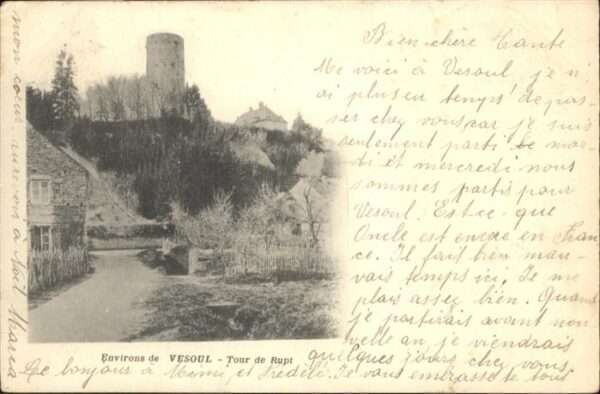 Bien chère Tante
Me voici à Vesoul, je n'
ai plus eu temps de pas-
ser chez vous car je suis
seulement parti le mar-
di et mercredi nous
sommes partis pour
Vesoul. Est-ce que
Oncle est encore en Fran
ce. Il fait bien mau-
vais temps ici. Je me
plais assez bien. Quand
je partirais avant nou-
velle an, je viendrais
quelques jours chez vous
Le bonjour à Mimi et Frédélé. Je vous embrasse de tout
mon cœur, au revoir à Noël Maria
Environs de VESOUL - Tour de Rupt